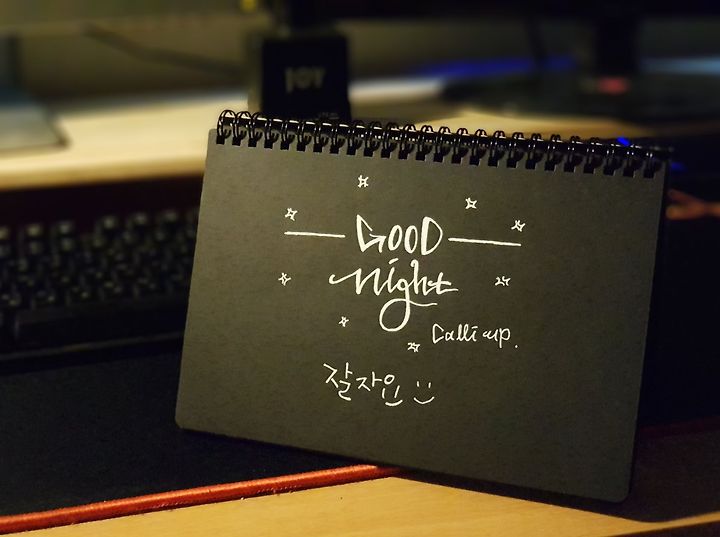 JOY
GOOD
night
Calli up.
잘자인 :)